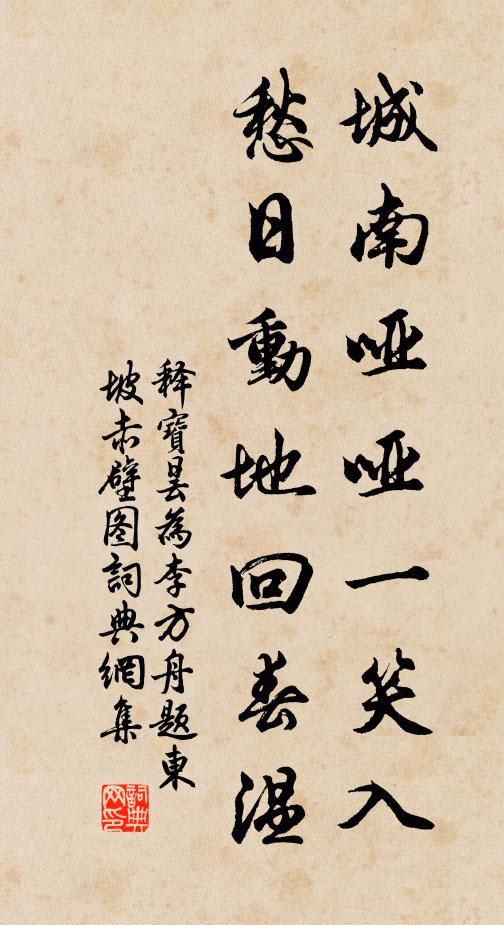 城南哑哑一笑入
愁日動地回春温
释寶昙為李方舟題東
坡赤壁图詞典網集
詞典网印